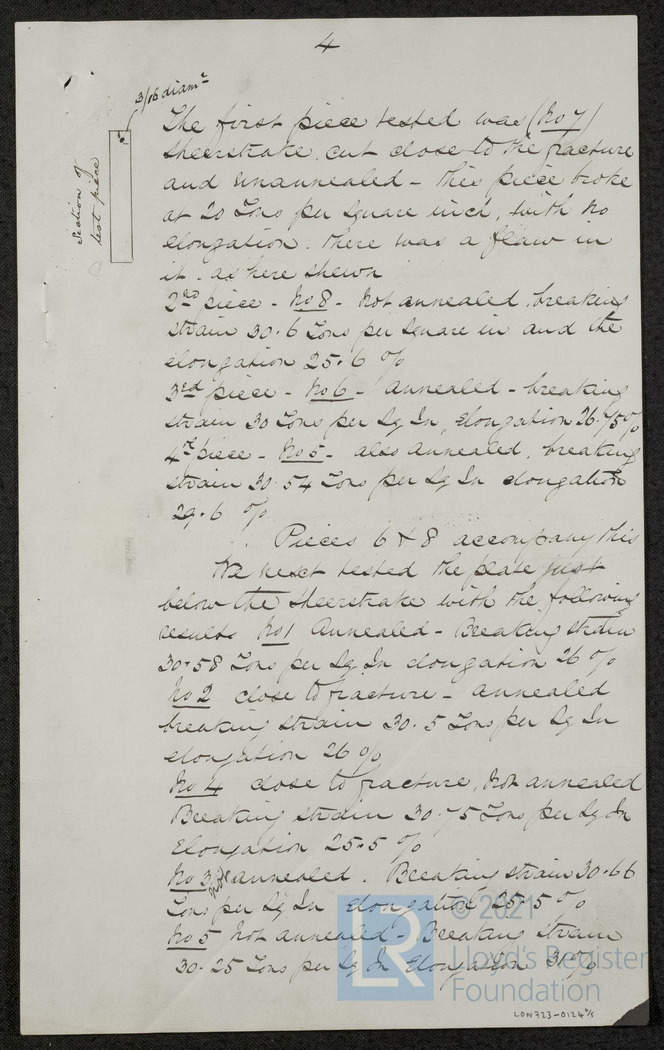 4
3/16 diamr
Section of
test piece
The first piece tested was (No 7)
Sheerstrake, cut close to the fracture
and unannealed - this piece broke
at 20 Tons per Square inch, with no
elongation. there was a flaw in
it. as here shewn
2nd piece - No 8 - Not annealed, breaking
strain 30.6 Tons per Square in and the
elongation 25.6 %
3rd piece - No 6 - annealed - breaking
strain 30 Tons per Sq In, elongation 26.75%
4th piece - No 5 - also annealed, breaking
strain 30.54 Tons per Sq In elongation
29.6 %
Pieces 6 & 8 accompany this
We next tested the plate just
below the Sheerstrake with the following
results No 1 Annealed - Breaking strain
30.58 Tons per Sq In elongation 26 %
No 2 close to fracture - annealed
breaking strain 30.5 Tons per Sq In
elongation 26 %
No 4 close to fracture, Not annealed
Breaking strain 30.75 Tons per Sq In
Elongation 25.5 %
No 3 not annealed. Breaking strain 30.66
Tons per Sq In elongation 25.5 %
No 5 Not annealed - Breaking strain
30.25 Tons per Sq In Elongation 31%
© 2021
LR
Lloyd's Register
Foundation
LON723-0124